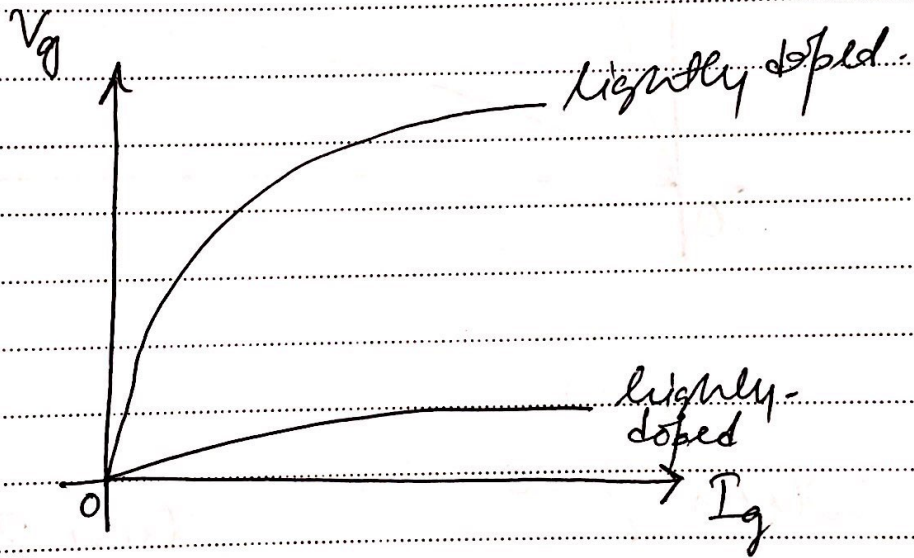 Vg
lightly doped.
highly-
doped
O
Ig